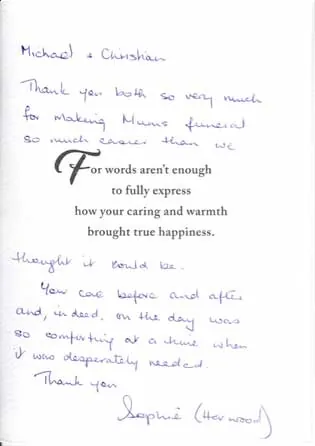 Michael + Christian
Thank you both so very much
for making Mums funeral
so much easier than we
For words aren't enough
to fully express
how your caring and warmth
brought true happiness.
thought it could be.
Your care before and after
and, indeed, on the day was
so comforting at a time when
it was desperately needed.
Thank you
Sophie (Harwood)